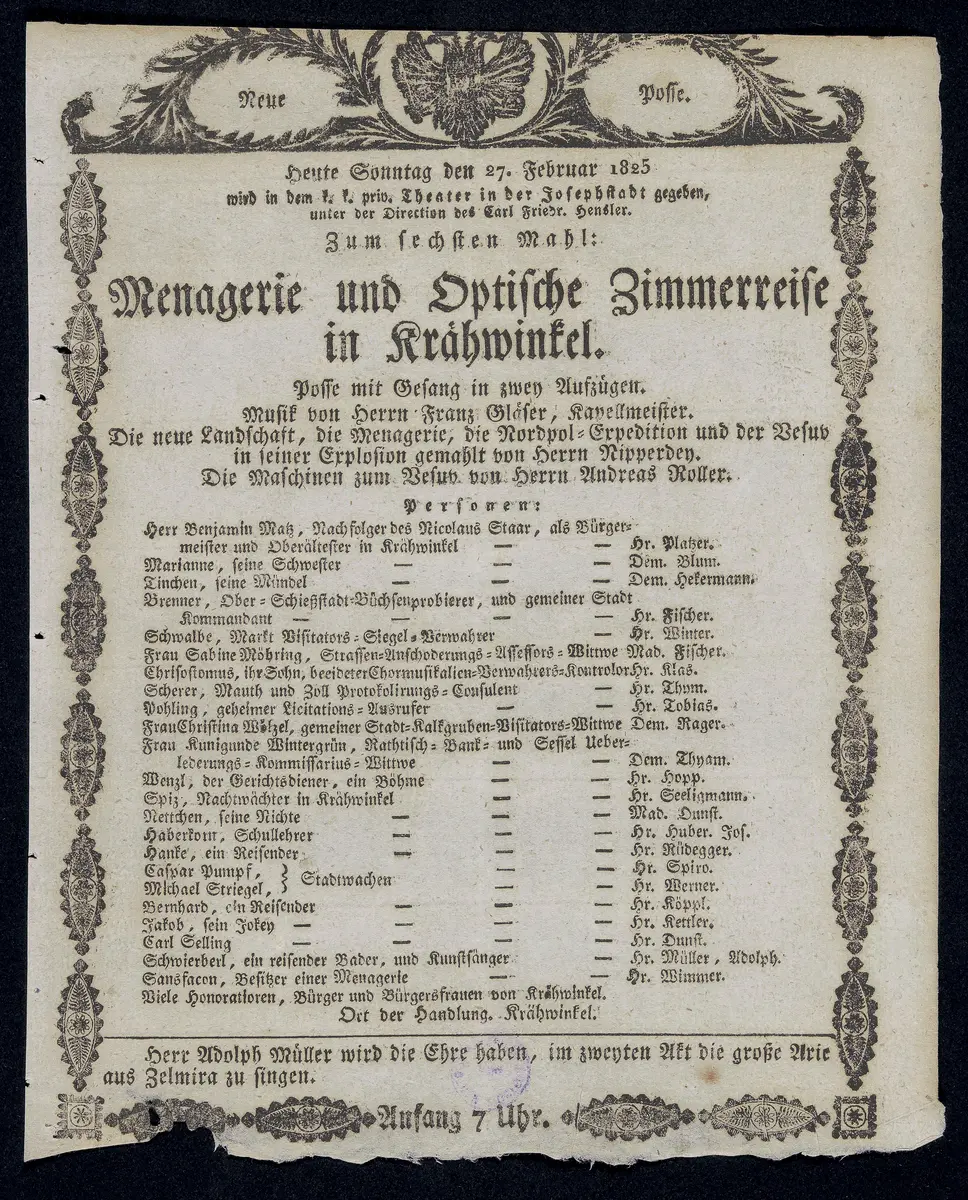 Neue Posse.
Heute Sonntag den 27. Februar 1825
wird in dem k. k. priv. Theater in der Josephstadt gegeben,
unter der Direction des Carl Friedr. Hensler.
Zum sechsten Mahl:
Menagerie und Optische Zimmerreise
in Krähwinkel.
Posse mit Gesang in zwey Aufzügen.
Musik von Herrn Franz Gläser, Kapellmeister.
Die neue Landschaft, die Menagerie, die Nordpol-Expedition und der Vesuv
in seiner Explosion gemahlt von Herrn Nipperdey.
Die Maschinen zum Vesuv von Herrn Andreas Roller.
Personen:
Herr Benjamin Matz, Nachfolger des Nicolaus Staar, als Bürger-
meister und Oberältester in Krähwinkel — — Hr. Platzer.
Marianne, seine Schwester — — — Dem. Blum.
Tinchen, seine Mündel — — — Dem. Hekermann.
Brenner, Ober-Schießstadt-Büchsenprobierer, und gemeiner Stadt
Kommandant — — — — Hr. Fischer.
Schwalbe, Markt Visitators-Siegel-Verwahrer — Hr. Winter.
Frau Sabine Möhring, Strassen-Anschoderungs-Assessors-Wittwe Mad. Fischer.
Chrisostomus, ihr Sohn, beeideter Chormusikalien-Verwahrers-Kontrolor Hr. Klas.
Scherer, Mauth und Zoll Protokolirungs-Consulent — Hr. Thym.
Pohling, geheimer Licitations-Ausrufer — — Hr. Tobias.
Frau Christina Wölzel, gemeiner Stadt-Kalkgruben-Visitators-Wittwe Dem. Rager.
Frau Kunigunde Wintergrün, Rathtisch-Bank- und Sessel Ueber-
lederungs-Kommissarius-Wittwe — — Dem. Thyam.
Wenzl, der Gerichtsdiener, ein Böhme — — Hr. Hopp.
Spiz, Nachtwächter in Krähwinkel — — Hr. Seeligmann.
Nettchen, seine Nichte — — — Mad. Dunst.
Haberkorn, Schullehrer — — — Hr. Huber. Jos.
Hanke, ein Reisender — — — Hr. Rüdegger.
Caspar Pumpf, } Stadtwachen — — Hr. Spiro.
Michael Striegel, } — — Hr. Werner.
Bernhard, ein Reisender — — — Hr. Köppl.
Jakob, sein Jokey — — — — Hr. Kettler.
Carl Selling — — — — Hr. Dunst.
Schwierberl, ein reisender Bader, und Kunstsänger — Hr. Müller, Adolph.
Sansfacon, Besitzer einer Menagerie — — Hr. Wimmer.
Viele Honoratioren, Bürger und Bürgersfrauen von Krähwinkel.
Ort der Handlung. Krähwinkel.
Herr Adolph Müller wird die Ehre haben, im zweyten Akt die große Arie
aus Zelmira zu singen.
Anfang 7 Uhr.